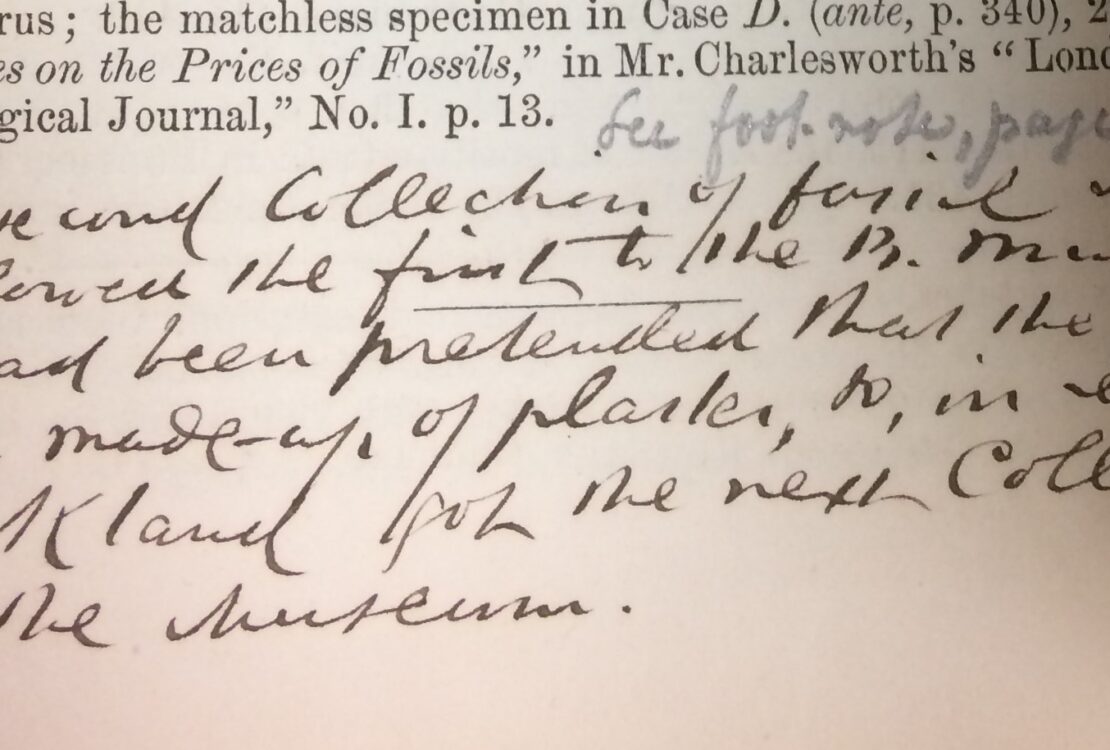 rus ; the matchless specimen in Case D. (ante, p. 340), 2
es on the Prices of Fossils,” in Mr. Charlesworth’s “ Lond
gical Journal,” No. I. p. 13.
See foot-note, page
second Collection of fossil
lowed the first to the B. Mu
ad been pretended that the
made-up, of plaster, &, in
kland got the next Coll
the Museum.